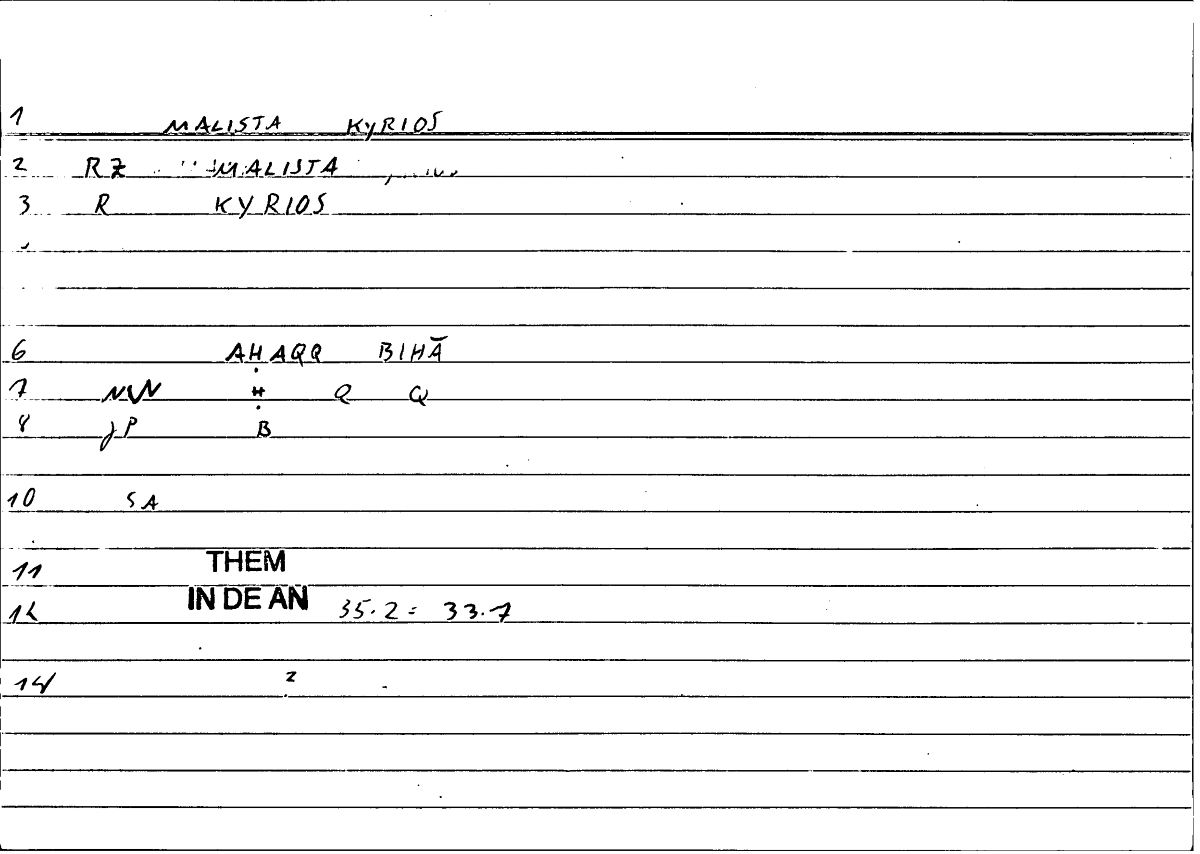 1 MALISTA KYRIOS
2 RZ MALISTA
3 R KYRIOS
6 AḤAQQ BIHĀ
7 NW Ḥ Q Q
8 JP B
10 SA
11 THEM
12 IN DE AN 35.2 = 33.7
14 2